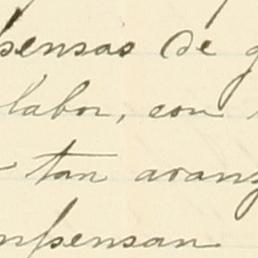 pensas de g
labor, con
tan avanz
mpensan